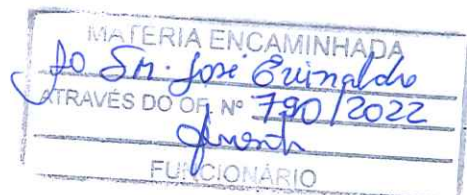 MATERIA ENCAMINHADA
Ao Sr. José Erinaldo
ATRAVÉS DO OF. Nº 790/2022
FUNCIONÁRIO